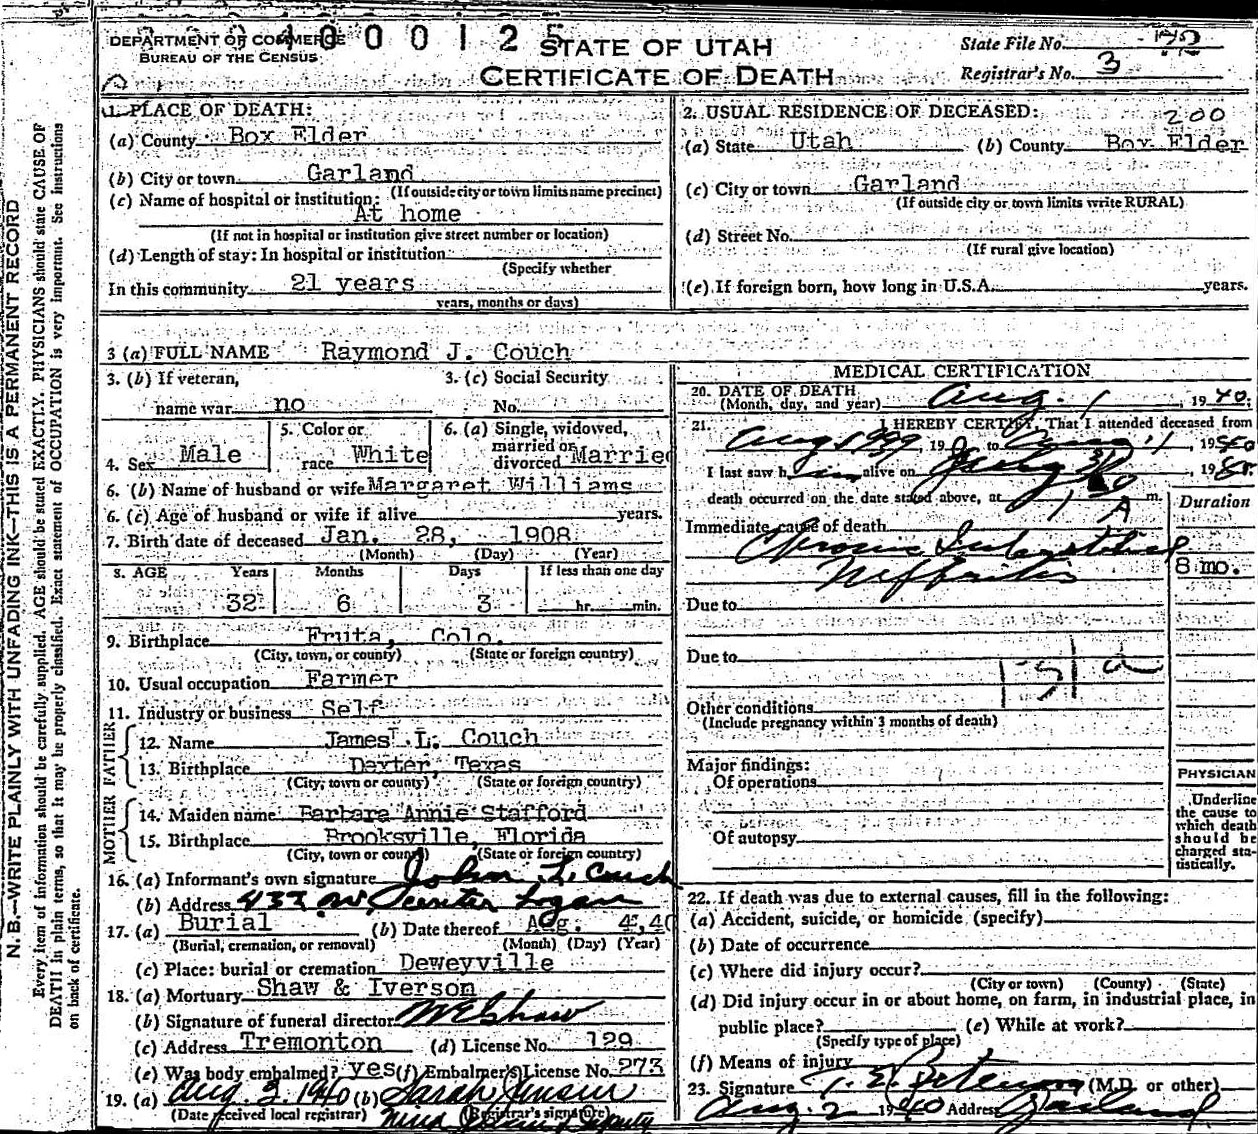 N. B.—WRITE PLAINLY WITH UNFADING INK—THIS IS A PERMANENT RECORD
Every item of information should be carefully supplied. AGE should be stated EXACTLY. PHYSICIANS should state CAUSE OF
DEATH in plain terms, so that it may be properly classified. Exact statement of OCCUPATION is very important. See instructions
on back of certificate.
4 0 0 0 1 2 5
DEPARTMENT OF COMMERCE
BUREAU OF THE CENSUS
STATE OF UTAH
CERTIFICATE OF DEATH
State File No. 72
Registrar's No. 3
1. PLACE OF DEATH:
(a) County Box Elder
(b) City or town Garland
(If outside city or town limits name precinct)
(c) Name of hospital or institution:
At home
(If not in hospital or institution give street number or location)
(d) Length of stay: In hospital or institution
(Specify whether
In this community 21 years
years, months or days)
2. USUAL RESIDENCE OF DECEASED:
200
(a) State Utah (b) County Box Elder
(c) City or town Garland
(If outside city or town limits write RURAL)
(d) Street No.
(If rural give location)
(e) If foreign born, how long in U.S.A. years.
3 (a) FULL NAME Raymond J. Couch
3. (b) If veteran, 3. (c) Social Security
name war no No.
4. Sex Male 5. Color or race White 6. (a) Single, widowed, married or divorced Married
6. (b) Name of husband or wife Margaret Williams
6. (c) Age of husband or wife if alive years.
7. Birth date of deceased Jan. 28, 1908
(Month) (Day) (Year)
8. AGE Years Months Days If less than one day
32 6 3 hr. min.
9. Birthplace Fruta, Colo.
(City, town, or county) (State or foreign country)
10. Usual occupation Farmer
11. Industry or business Self
FATHER
12. Name James L. Couch
13. Birthplace Dexter, Texas
(City, town or county) (State or foreign country)
MOTHER
14. Maiden name Barbara Annie Stafford
15. Birthplace Brooksville, Florida
(City, town or county) (State or foreign country)
16. (a) Informant's own signature John L. Couch
(b) Address 437 W. Center Logan
17. (a) Burial (b) Date thereof Aug. 4, 40
(Burial, cremation, or removal) (Month) (Day) (Year)
(c) Place: burial or cremation Deweyville
18. (a) Mortuary Shaw & Iverson
(b) Signature of funeral director W E Shaw
(c) Address Tremonton (d) License No. 129
(e) Was body embalmed? yes (f) Embalmer's License No. 273
19. (a) Aug 3, 1940 (b) Sarah Jensen
(Date received local registrar) (Registrar's signature)
Deputy
MEDICAL CERTIFICATION
20. DATE OF DEATH
(Month, day, and year) Aug. 1, 1940.
21. I HEREBY CERTIFY, That I attended deceased from
19 to Aug 1, 19
I last saw him alive on July 19
death occurred on the date stated above, at 1 A m.
Duration
Immediate cause of death
Chronic
Neffritis 8 mo.
Due to
Due to
131 a
Other conditions
(Include pregnancy within 3 months of death)
Major findings:
Of operations
Of autopsy
PHYSICIAN
Underline
the cause to
which death
should be
charged sta-
tistically.
22. If death was due to external causes, fill in the following:
(a) Accident, suicide, or homicide (specify)
(b) Date of occurrence
(c) Where did injury occur?
(City or town) (County) (State)
(d) Did injury occur in or about home, on farm, in industrial place, in
public place? (e) While at work?
(Specify type of place)
(f) Means of injury
23. Signature (M.D. or other)
Aug. 2 1940 Address Garland